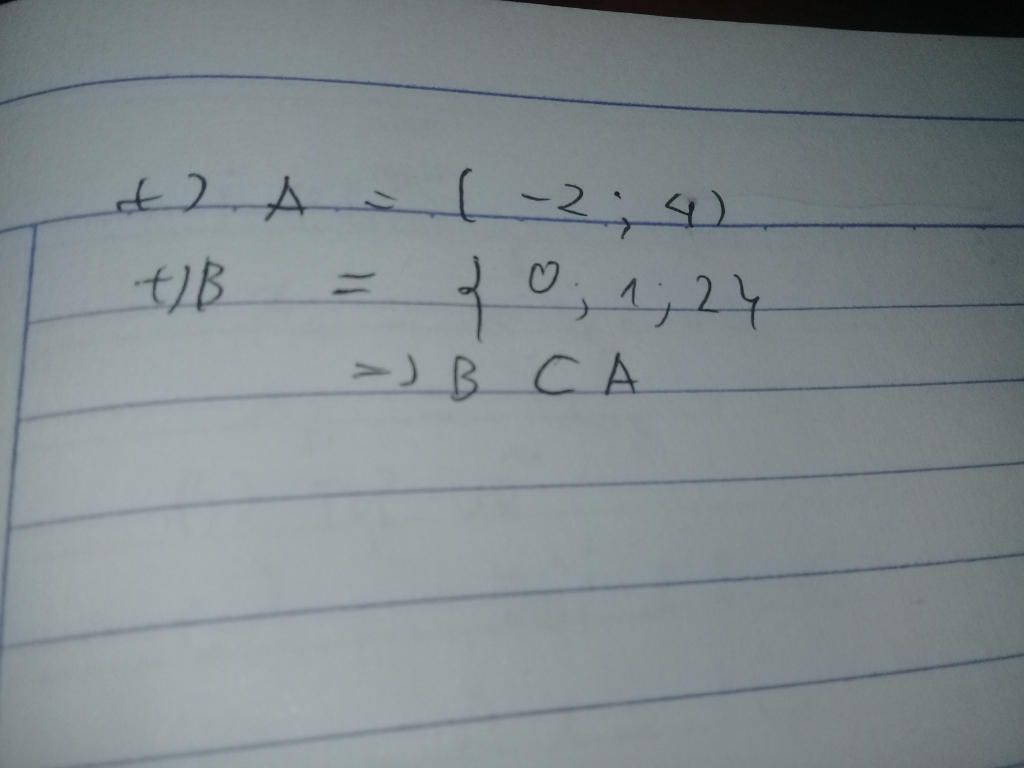 +) A = ( -2 ; 4 )
+) B = { 0 ; 1 ; 2 }
=> B ⊂ A